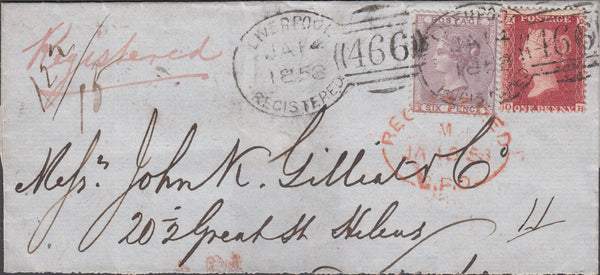 Registered
LIVERPOOL
JA
1858
REGISTERED
466
POSTAGE
SIX PENCE
466
POSTAGE
ONE PENNY
REGISTERED
M
JA 58
Messrs John K. Gilliat & Co
20½ Great St Helens